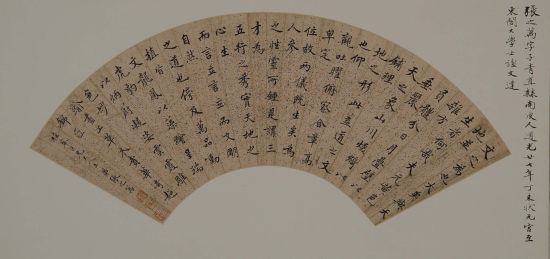 張之萬字子青直隸南皮人道光廿七年丁未狀元官至
東閣大學士諡文達
文之為德也大矣與
天地並
生者何哉夫玄黃色
雜方圓
體分日月疊璧以
垂麗天
之象山川煥綺以
鋪理地之
形此蓋道之文
也仰
觀吐曜俯察含章高
卑定
位故兩儀既生矣惟
人參之
性靈所鍾是謂三
才為
五行之秀實天地之
心生
而言立言立而文明
自然
之道也傍及萬品動
植皆
文龍鳳以藻繪呈瑞
虎豹
以炳蔚凝姿雲霞雕
色有
踰畫工之妙草木賁華